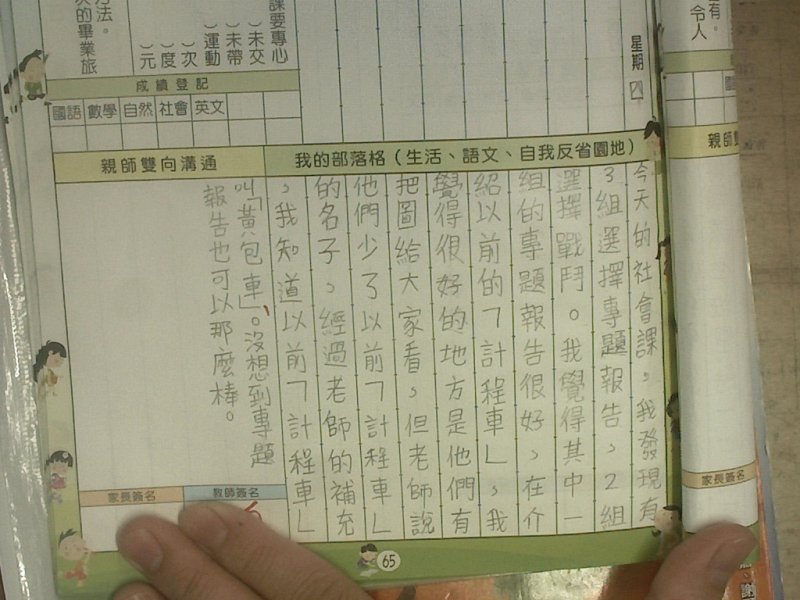 方法。
次的畢業旅
課要專心
)未交
)未帶
)運動
)次
)度
)元
星期四
有。
令人
成績登記
國語 數學 自然 社會 英文
親師雙向溝通
我的部落格(生活、語文、自我反省園地)
今天的社會課,我發現有
3組選擇專題報告,2組
選擇戰鬥。我覺得其中一
組的專題報告很好,在介
紹以前的「計程車」,我
覺得很好的地方是他們有
把圖給大家看,但老師說
他們少了以前「計程車」
的名子,經過老師的補充
,我知道以前「計程車」
叫「黃包車」。沒想到專題
報告也可以那麼棒。
家長簽名
教師簽名
65
親師
家長簽名
、謝